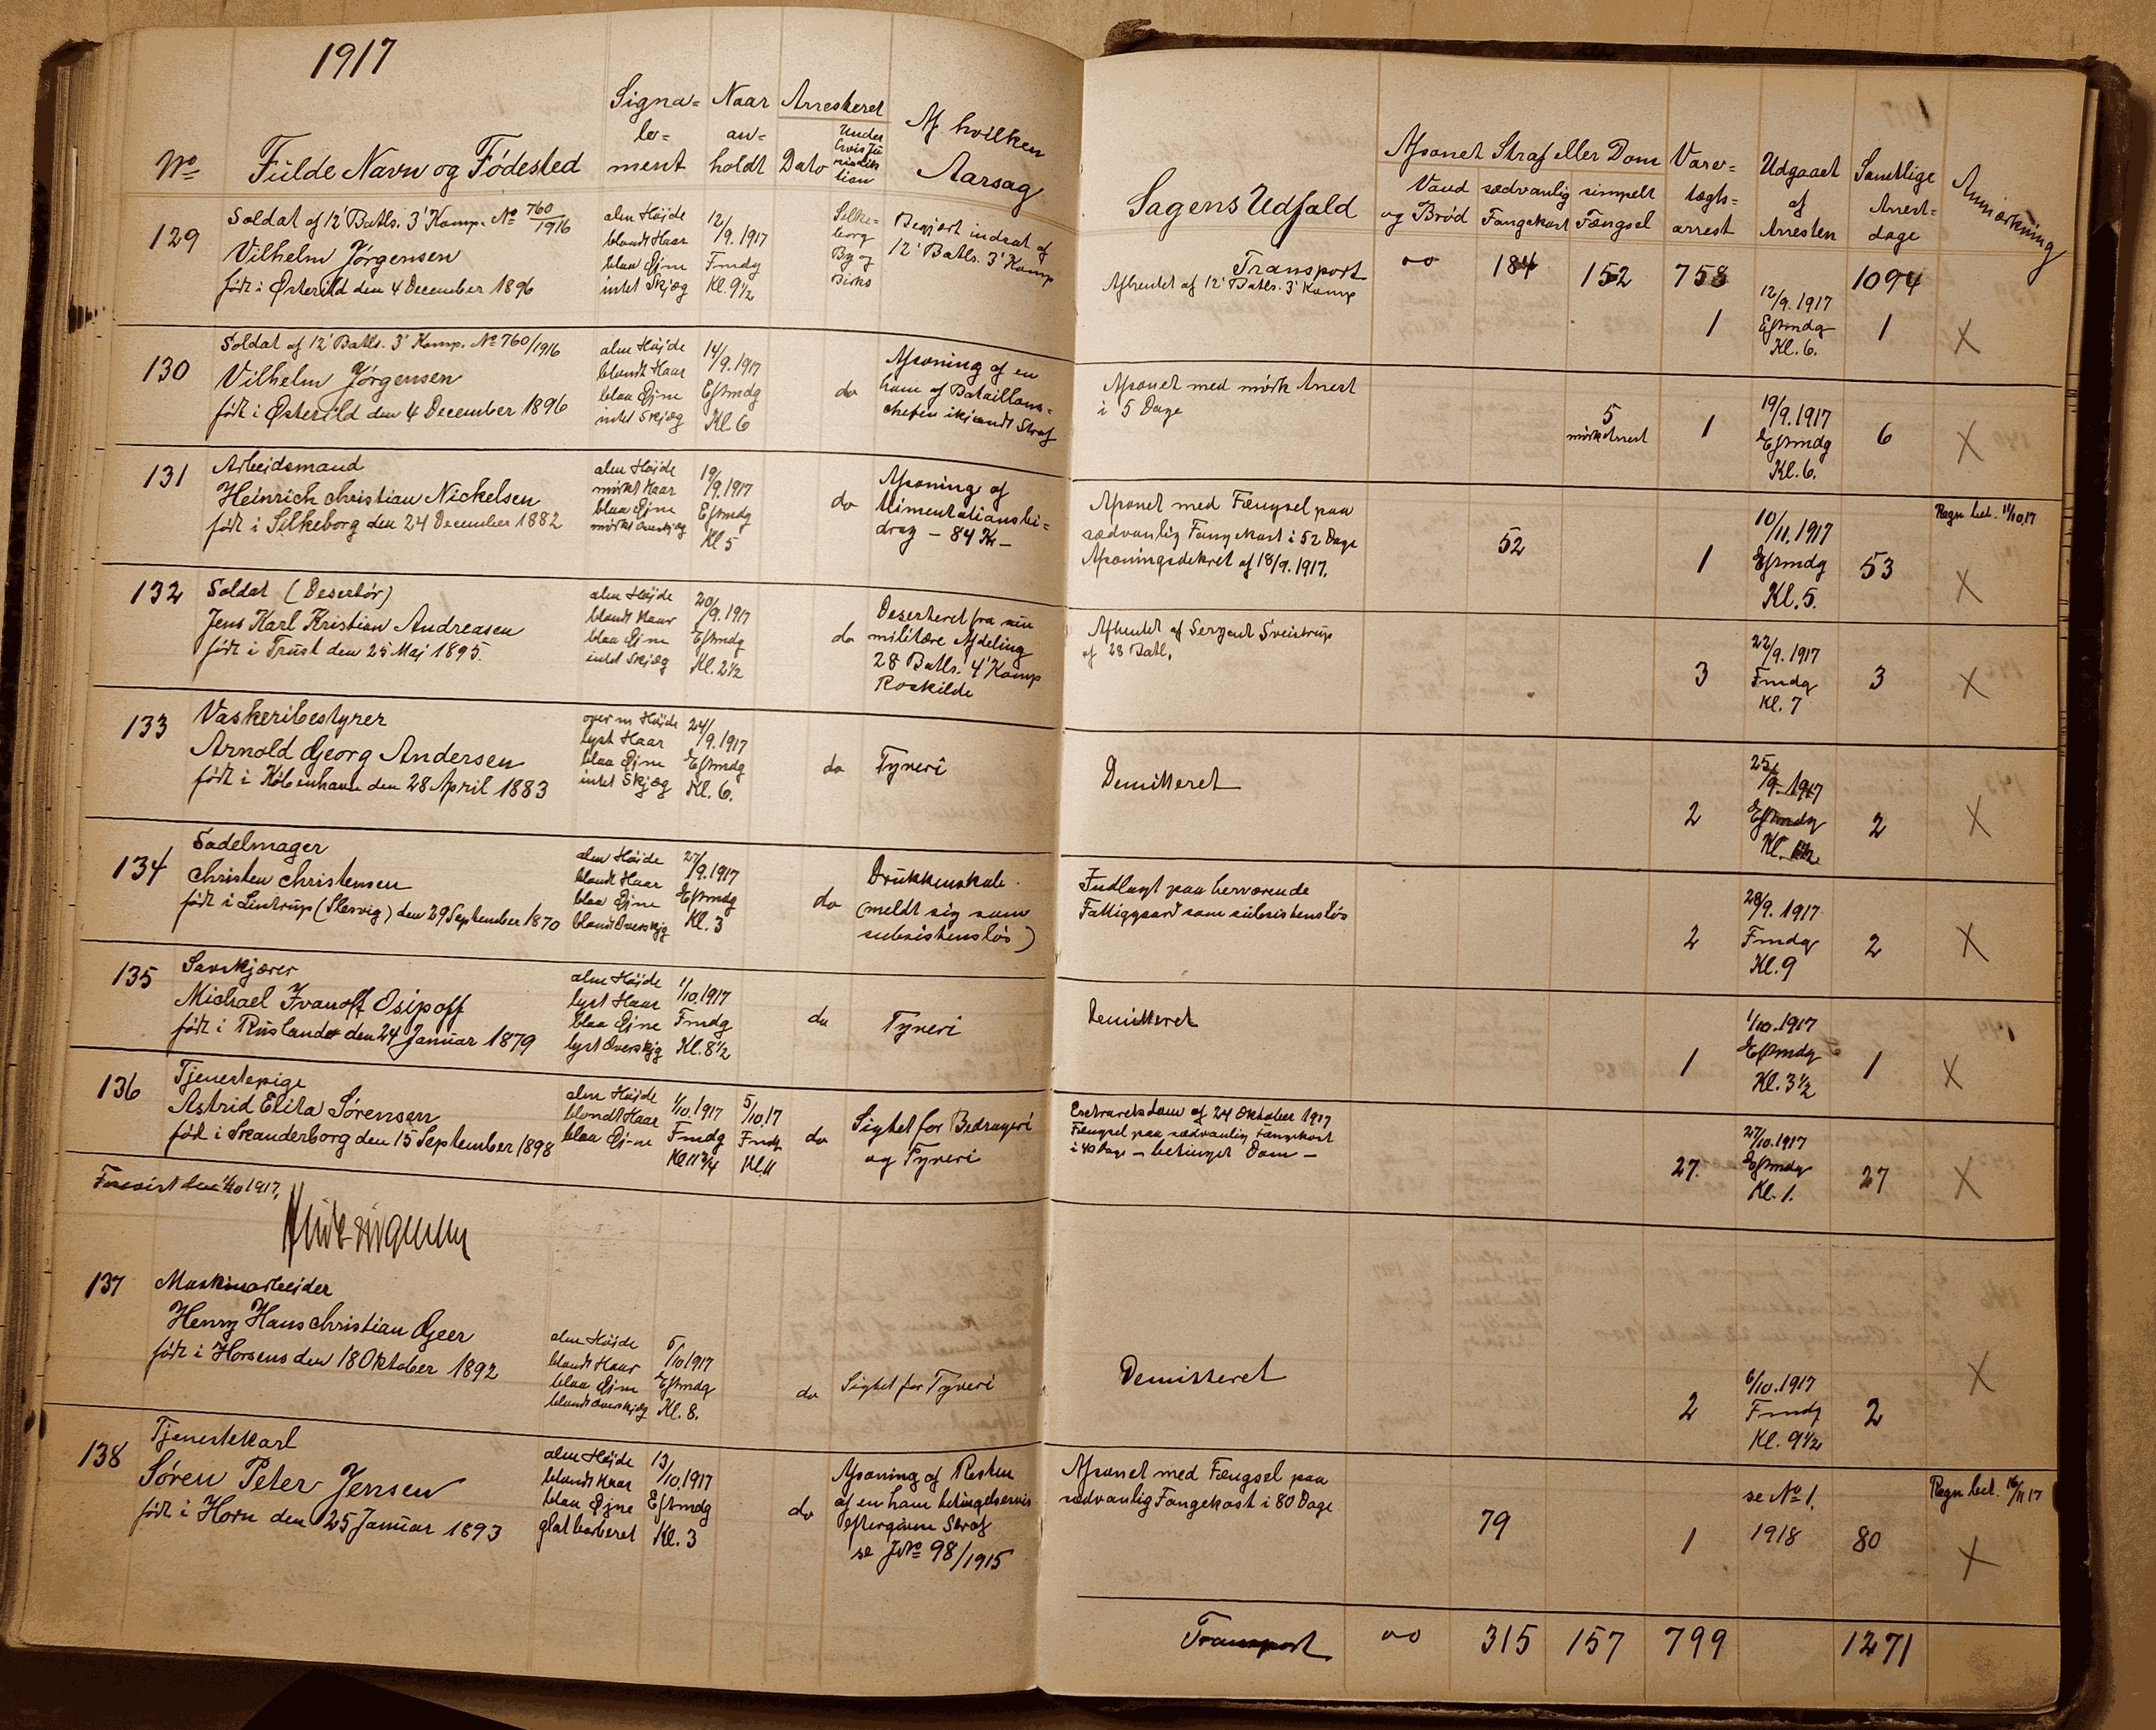 1917
Nº
Fulde Navn og Fødested
Signa=
le=
ment
Naar
an=
holdt
Arresteret
Dato
Under
hvis Ju
risdik
tion
Af hvilken
Aarsag
129
Soldat af 12' Batls. 3' Komp. Nº 760/1916
Vilhelm Jørgensen
født i Østerild den 4 December 1896
alm Højde
blondt Haar
blaa Øjne
intet Skjæg
12/9. 1917
Fmdg
Kl. 9½
Silke=
borg
By og
Birks
Begjært indsat af
12' Batls. 3' Komp
130
Soldat af 12' Batls. 3' Komp. Nº 760/1916
Vilhelm Jørgensen
født i Østerild den 4 December 1896
alm Højde
blondt Haar
blaa Øjne
intet Skjæg
14/9. 1917
Eftmdg
Kl 6
do
Afsoning af en
ham af Bataillons=
chefen ikjendt Straf
131
Arbejdsmand
Heinrich Christian Nickelsen
født i Silkeborg den 24 December 1882
alm Højde
mørkt Haar
blaa Øjne
mørkt Overskjæg
19/9. 1917
Eftmdg
Kl 5
do
Afsoning af
Alimentationsbi=
drag – 84 Kr –
132
Soldat (Desertør)
Jens Karl Kristian Andreasen
født i Trust den 25 Maj 1895.
alm Højde
blondt Haar
blaa Øjne
intet Skjæg
20/9. 1917
Eftmdg
Kl. 2½
do
Deserteret fra sin
militære Afdeling
28 Batls. 4' Komp
Roskilde
133
Vaskeribestyrer
Arnold Georg Andersen
født i København den 28 April 1883
over m Højde
lyst Haar
blaa Øjne
intet Skjæg
24/9. 1917
Eftmdg
Kl. 6.
do
Tyveri
134
Sadelmager
Christen Christensen
født i Lintrup (Slesvig) den 29 September 1870
alm Højde
blondt Haar
blaa Øjne
blondt Overskjg
27/9. 1917
Eftmdg
Kl. 3
do
Drukkenskab
(meldt sig som
subsistensløs)
135
Savskjærer
Michael Ivanoff Osipoff
født i Rusland den 24 Januar 1879
alm Højde
lyst Haar
blaa Øjne
lyst Overskjg
1/10. 1917
Fmdg
Kl. 8½
do
Tyveri
136
Tjenestepige
Astrid Elita Sørensen
født i Skanderborg den 15 September 1898
alm Højde
blondt Haar
blaa Øjne
1/10. 1917
Fmdg
Kl 11¾
5/10. 17
Fmdg
Kl. 11
do
Sigtet for Bedrageri
og Tyveri
Forevist den 4/10 1917,
137
Maskinarbejder
Henry Hans Christian Geer
født i Horsens den 18 Oktober 1892
alm Højde
blondt Haar
blaa Øjne
blondt Overskjæg
5/10 1917
Eftmdg
Kl. 8.
do
Sigtet for Tyveri
138
Tjenestekarl
Søren Peter Jensen
født i Horn den 25 Januar 1893
alm Højde
blondt Haar
blaa Øjne
glat barberet
13/10. 1917
Eftmdg
Kl. 3
do
Afsoning af Resten
af en ham betingelsesvis
eftergiven Straf
se J.Nº 98/1915
Sagens Udfald
Afsonet Straf eller Dom
Vand
og Brød
sædvanlig
Fangekost
simpelt
Fængsel
Vare=
tægts=
arrest
Udgaaet
af
Arresten
Samtlige
Arrest=
dage
Anmærkning
Transport
184
152
758
1094
Afhentet af 12' Batls. 3' Komp
1
12/9. 1917
Eftmdg
Kl. 6.
1
X
Afsonet med mørk Arrest
i 5 Dage
5
mørk Arrest
1
19/9. 1917
Eftmdg
Kl. 6.
6
X
Afsonet med Fængsel paa
sædvanlig Fangekost i 52 Dage
Afsoningsdekret af 18/9. 1917.
52
1
10/11. 1917
Eftmdg
Kl. 5.
53
Regn bet. 11/10. 17
X
Afhentet af Sergent Sveistrup
af 28 Batl.
3
22/9. 1917
Fmdg
Kl. 7
3
X
Demitteret
2
25/9. 1917
Eftmdg
2
X
Indlagt paa herværende
Fattiggaard som subsistensløs
2
28/9. 1917
Fmdg
Kl. 9
2
X
Demitteret
1
1/10. 1917
Eftmdg
Kl. 3½
1
X
Extraretsdom af 24 Oktober 1917
Fængsel paa sædvanlig Fangekost
i 40 Dage – betinget Dom –
27.
27/10. 1917
Eftmdg
Kl. 1.
27
X
Demitteret
2
6/10. 1917
Fmdg
Kl. 9½
2
X
Afsonet med Fængsel paa
sædvanlig Fangekost i 80 Dage
79
1
se Nº 1.
1918
80
Regn bet. 16/11 17
X
Transport
315
157
799
1271